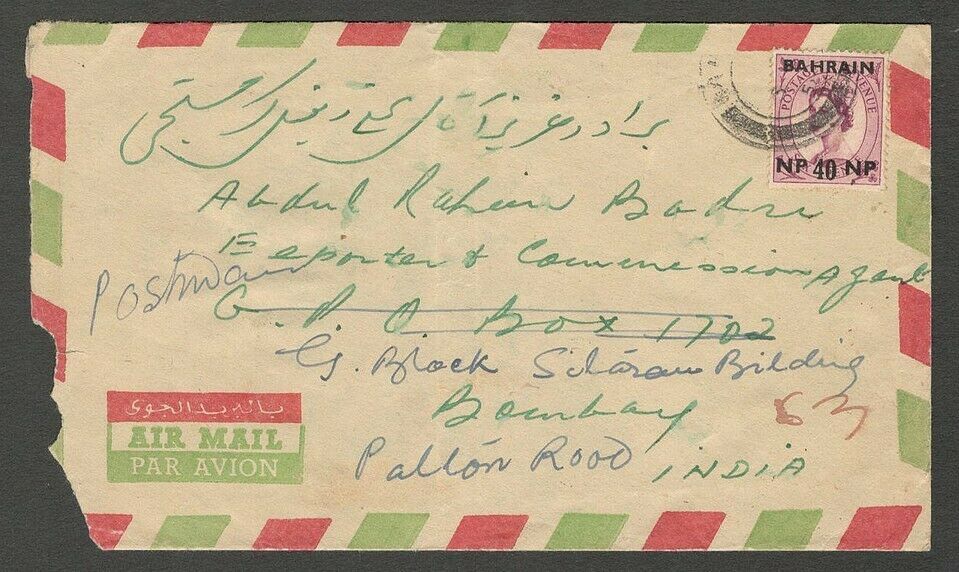 BAHRAIN
POSTAGE REVENUE
NP 40 NP
برادر عزیز آقای
Abdul Rahim Badri
Exporter & Commission Agent
Postman
G. P. O. Box 1702
G. Block Sitáram Bilding
Bombay
Paltón Rood
INDIA
بالبريد الجوى
AIR MAIL
PAR AVION